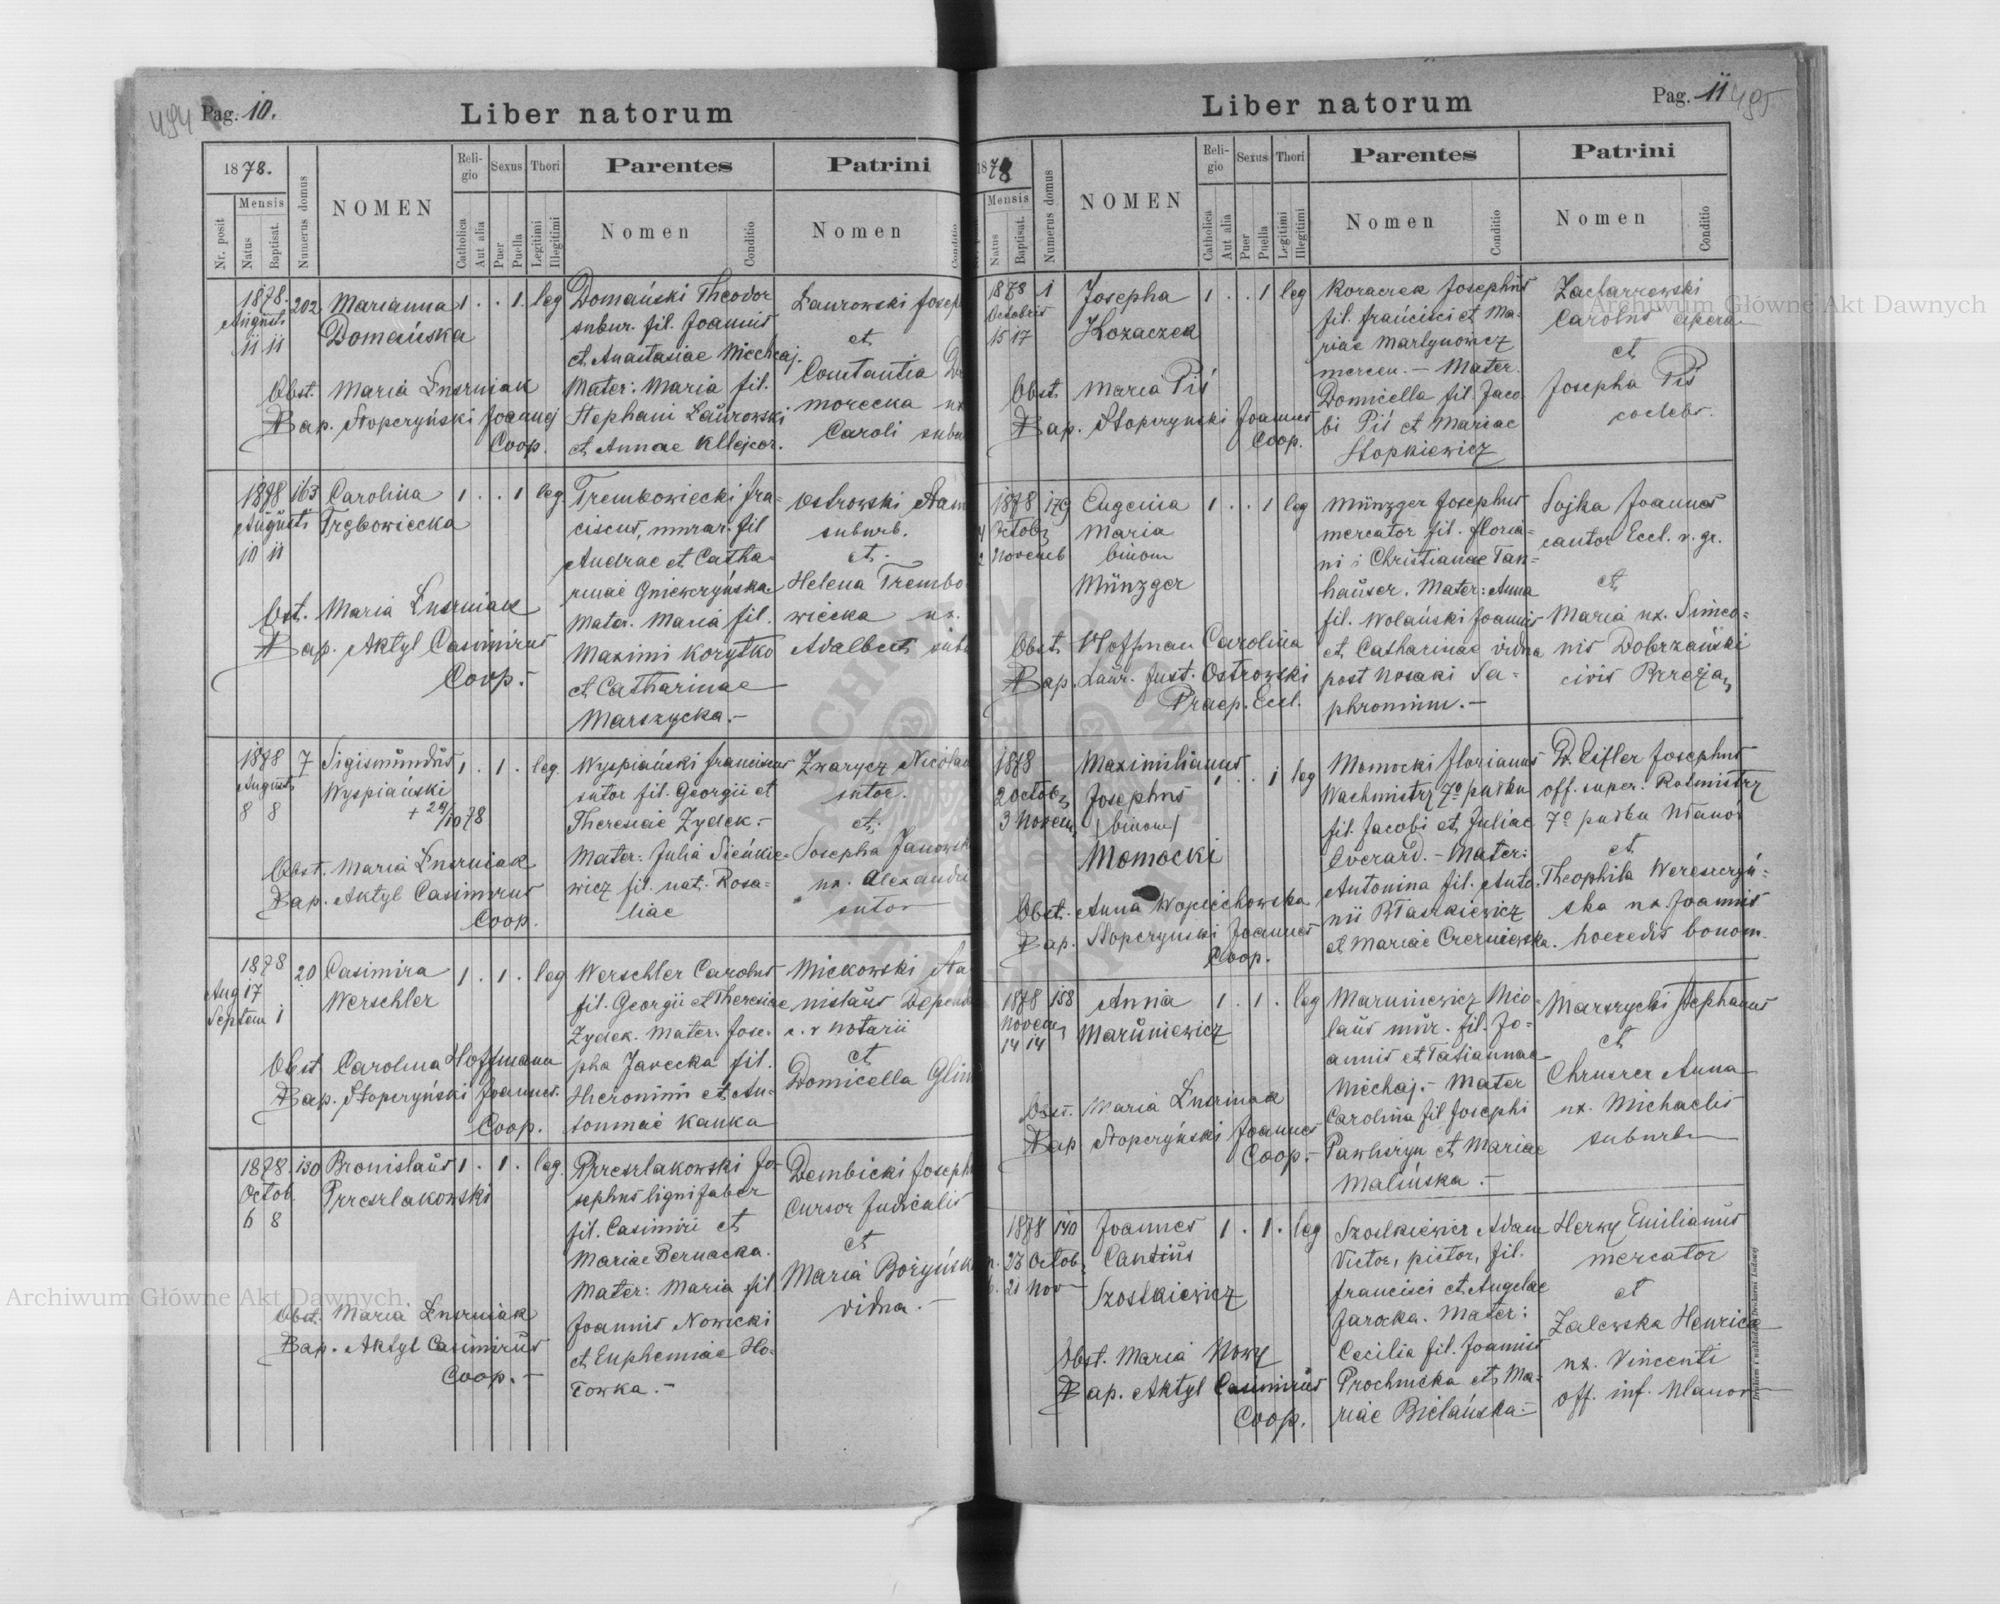 494
Pag. 10.
Liber natorum
1878.
Mensis
Nr. posit
Natus
Baptisat.
Numerus domus
NOMEN
Reli-
gio
Catholica
Aut alia
Sexus
Puer
Puella
Thori
Legitimi
Illegitimi
Parentes
Nomen
Conditio
Patrini
Nomen
Conditio
1878.
Augusti
11 11
202
Marianna
Domańska
1 . . 1. leg
Obst. Maria
Bap. Stopczyński Joannes
Coop.
Domański Theodor
subur. fil. Joannis
et Anastasiae Miechaj.
Mater: Maria fil.
Stephani Laurowski
et Annae
Laurowski Joseph
et
Constantia
morecka ux
Caroli subu
1878
Augusti
10 11
163
Carolina
Trębowiecka
1 . . 1 leg.
Obst. Maria
Bap. Aktyl Casimirus
Coop.-
Trembowiecki Fra-
ciscus, murar. fil
Andrae et Catha-
rinae Gniewczyńska
Mater. Maria fil.
Maximi Korytko
et Catharinae
Marszycka.-
Ostrowski Adam
suburb.
et.
Helena Trembo
wiecka ux.
Adalberti subu
1878
Augusti
8 8
7
Sigismundus
Wyspiański
+ 29/10 78
1 . 1 . leg.
Obst. Maria
Bap. Aktyl Casimirus
Coop.
Wyspiański Franciscus
sutor fil. Georgii et
Theresiae Zydek.-
Mater: Julia Sieńkie-
wicz fil. nat. Rosa-
liae
Zwarycz Nicolau
sutor.
et.
Josepha Janowsk
ux. Alexandri
sutor
1878
Aug 17
Septem 1
20
Casimira
Werschler
1 . 1 . leg
Obst. Carolina Hoffmann
Bap. Stopczyński Joannes.
Coop.
Werschler Carolus
fil. Georgii et Theresiae
Zydek. Mater: Jose-
pha Jarecka fil.
Hieronimi et An-
toninae Kauka
Mickowski Sta
nislaus
c. r notarii
et
Domicella
1878.
Octob.
6 8
130
Bronislaus
Przeszlakowski
1 . 1 . leg.
Obst. Maria
Bap. Aktyl Casimirus
Coop.-
Przeszlakowski Jo-
sephus lignifaber
fil. Casimiri et
Mariae Bernacka.
Mater: Maria fil
Joannis Nowicki
et Euphemiae Ho-
towka.-
Dembicki Joseph
Cursor Judicialis
et
Maria
vidua.-
Pag. 11
495
Liber natorum
1878
Mensis
Natus
Baptisat.
Numerus domus
NOMEN
Reli-
gio
Catholica
Aut alia
Sexus
Puer
Puella
Thori
Legitimi
Illegitimi
Parentes
Nomen
Conditio
Patrini
Nomen
Conditio
1878
Octobris
15 17
1
Josepha
Kozaczek
1 . . 1 leg
Obst. Maria Piś
Bap. Stopczyński Joannes
Coop.
Koraczek Josephus
fil. Francisci et Ma-
riae Martynowicz
mercen.- Mater.
Domicella fil. Jaco
bi Piś et Mariae
Stopkiewicz
Carolus
et
Josepha Piś
coelebs.
1878
4 Octob
2 Novemb
179
Eugenia
Maria
binom
Münzger
1 . . 1 leg
Obst. Hoffman Carolina
Bap. Laur. Just. Ostrowski
Praep. Eccl.
Münzger Josephus
mercator fil. Floria-
ni i Christianae Tan-
hauser. Mater: Anna
fil. Wolański Joannis
et Catharinae vidua
post Nosaki Sa-
phronium.-
Sojka Joannes
cantor Eccl. r. gr.
et
Maria ux. Simeo-
nis Dobrzański
civis
1878
2 Octob
3 Novem
Maximilianus
Josephus
/binom/
Momocki
1 . . 1 leg
Obst. Anna Wojciechowska
Bap. Stopczyński Joannes
Coop.
Momocki Florianus
Wachmistrz 7º pułku
fil. Jacobi et Juliae
Everard.- Mater:
Antonina fil. Anto-
nii Ptaszkiewicz
et Mariae Czerniewska.
D. Eisler Josephus
off. super. Rotmistrz
7º pułku Ułanów
et
Theophila Wereszczyń-
ska ux. Joannis
hoeredis bonom.
1878
Novem
14 14
158
Anna
Maruniewicz
1 . 1 . leg
Obst. Maria
Bap Stopczyński Joannes
Coop.-
Maruniewicz Nico-
laus mur. fil. Jo-
annis et Tatiannae
Miechaj.- Mater
Carolina fil Josephi
et Mariae
Malińska.-
Marszycki Stephanus
et
Anna
ux. Michaelis
suburb
1878
23 Octob
21 Nov
140
Joannes
Cantius
Szostkiewicz
1 . 1 . leg
Obst. Maria Nowy
Bap. Aktyl Casimirus
Coop.
Szostkiewicz Adam
Victor, pictor, fil.
Francisci et Angelae
Jarocka. Mater:
Cecilia fil. Joannis
Prochnicka et Ma-
riae Bielańska-
Herwy Emilianus
mercator
et
Zalewska Henrica
ux. Vincenti
off. inf. Ulanor
Archiwum Główne Akt Dawnych
Archiwum Główne Akt Dawnych